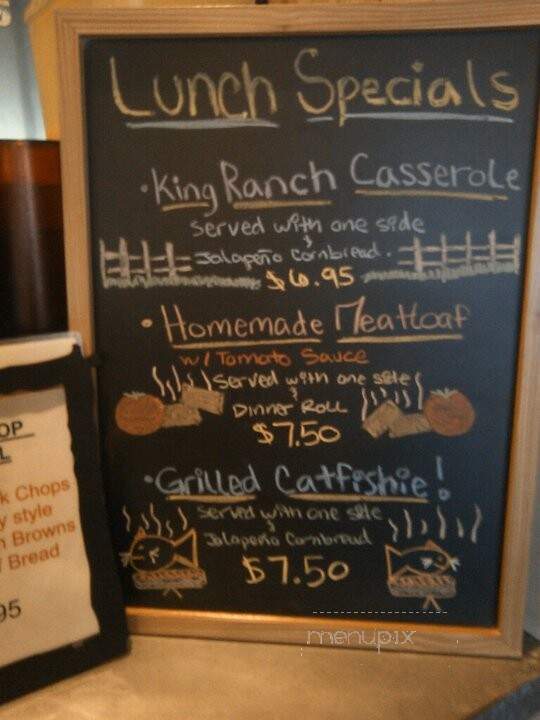 Lunch Specials
· King Ranch Casserole
Served with one side
&
Jalapeño Cornbread.
$6.95
· Homemade Meatloaf
w/ Tomato Sauce
Served with one side
&
Dinner Roll
$7.50
· Grilled Catfishie!
Served with one side
&
Jalapeño Cornbread
$7.50
OP
L
k Chops
y style
n Browns
/ Bread
95
menupix